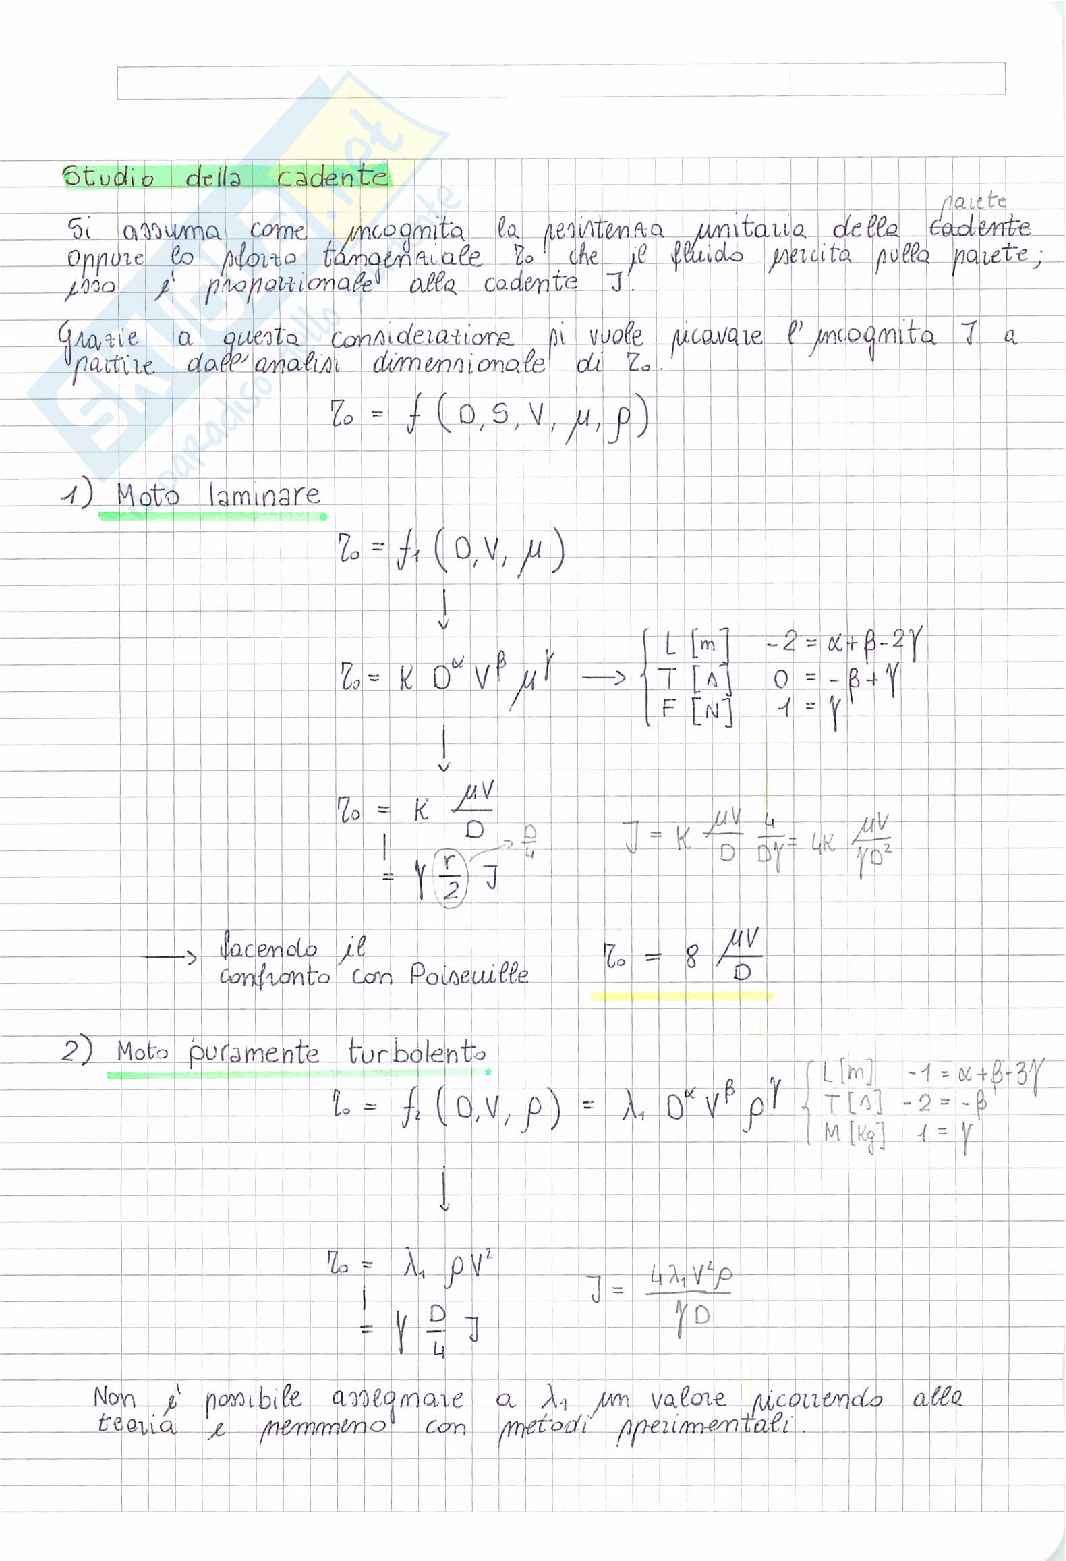 Studio della cadente
parete
Si assuma come incognita la resistenza unitaria della cadente
oppure lo sforzo tangenziale τ₀ che il fluido esercita sulla parete;
esso è proporzionale alla cadente J.
Grazie a questa considerazione si vuole ricavare l'incognita J a
partire dall'analisi dimensionale di τ₀.
τ₀ = f (D, S, V, μ, ρ)
1) Moto laminare
τ₀ = f₁ (D, V, μ)
↓
τ₀ = K D^α V^β μ^γ → { L [m] -2 = α+β-2γ
T [s] 0 = -β+γ
F [N] 1 = γ
↓
τ₀ = K μV/D
= γ (r/2) J → D/4
J = K μV/D 4/Dγ = 4K μV/γD²
→ facendo il
confronto con Poiseuille τ₀ = 8 μV/D
2) Moto puramente turbolento
τ₀ = f₂ (D, V, ρ) = λ₁ D^α V^β ρ^γ { L [m] -1 = α+β-3γ
T [s] -2 = -β
M [kg] 1 = γ
↓
τ₀ = λ₁ ρV²
= γ D/4 J
J = 4λ₁V²ρ/γD
Non è possibile assegnare a λ₁ un valore ricorrendo alla
teoria e nemmeno con metodi sperimentali.